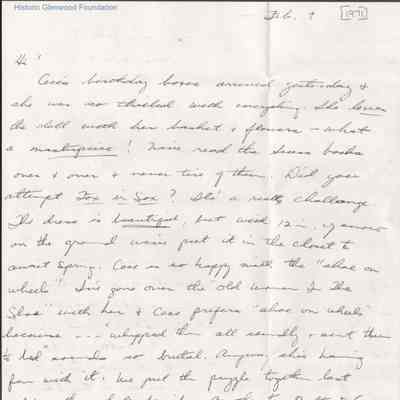 Historic Glenwood Foundation
Feb. 9 [1971]
Hi!
Cass's birthday boxes arrived yesterday &
she was so thrilled with everything. She loves
the doll with her basket & flowers – what
a masterpiece! I've read the Seuss books
over & over & never tire of them. Did you
attempt Fox in Sox? It's a really challenge
The dress is beautiful, but with 12 in. of snow
on the ground we've put it in the closet to
await Spring. Cass is so happy with the "shoe on
wheels" I've gone over the "Old Woman In The
Shoe" with her & Cass prefers "shoe on wheels"
because --- "whipped them all soundly & sent them
to bed" sounds so brutal. Anyway, she's having
fun with it. We put the puzzle together last